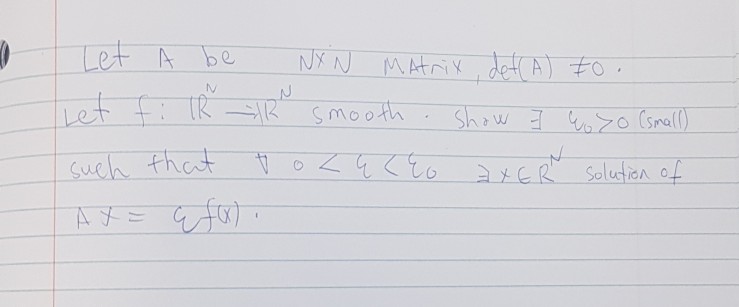 Let A be N×N Matrix, det(A) ≠0.
Let f: ℝᴺ →ℝᴺ smooth. show ∃ ε₀>0 (small)
such that ∀ 0<ε<ε₀ ∃x∈ℝᴺ solution of
Ax= εf(x).